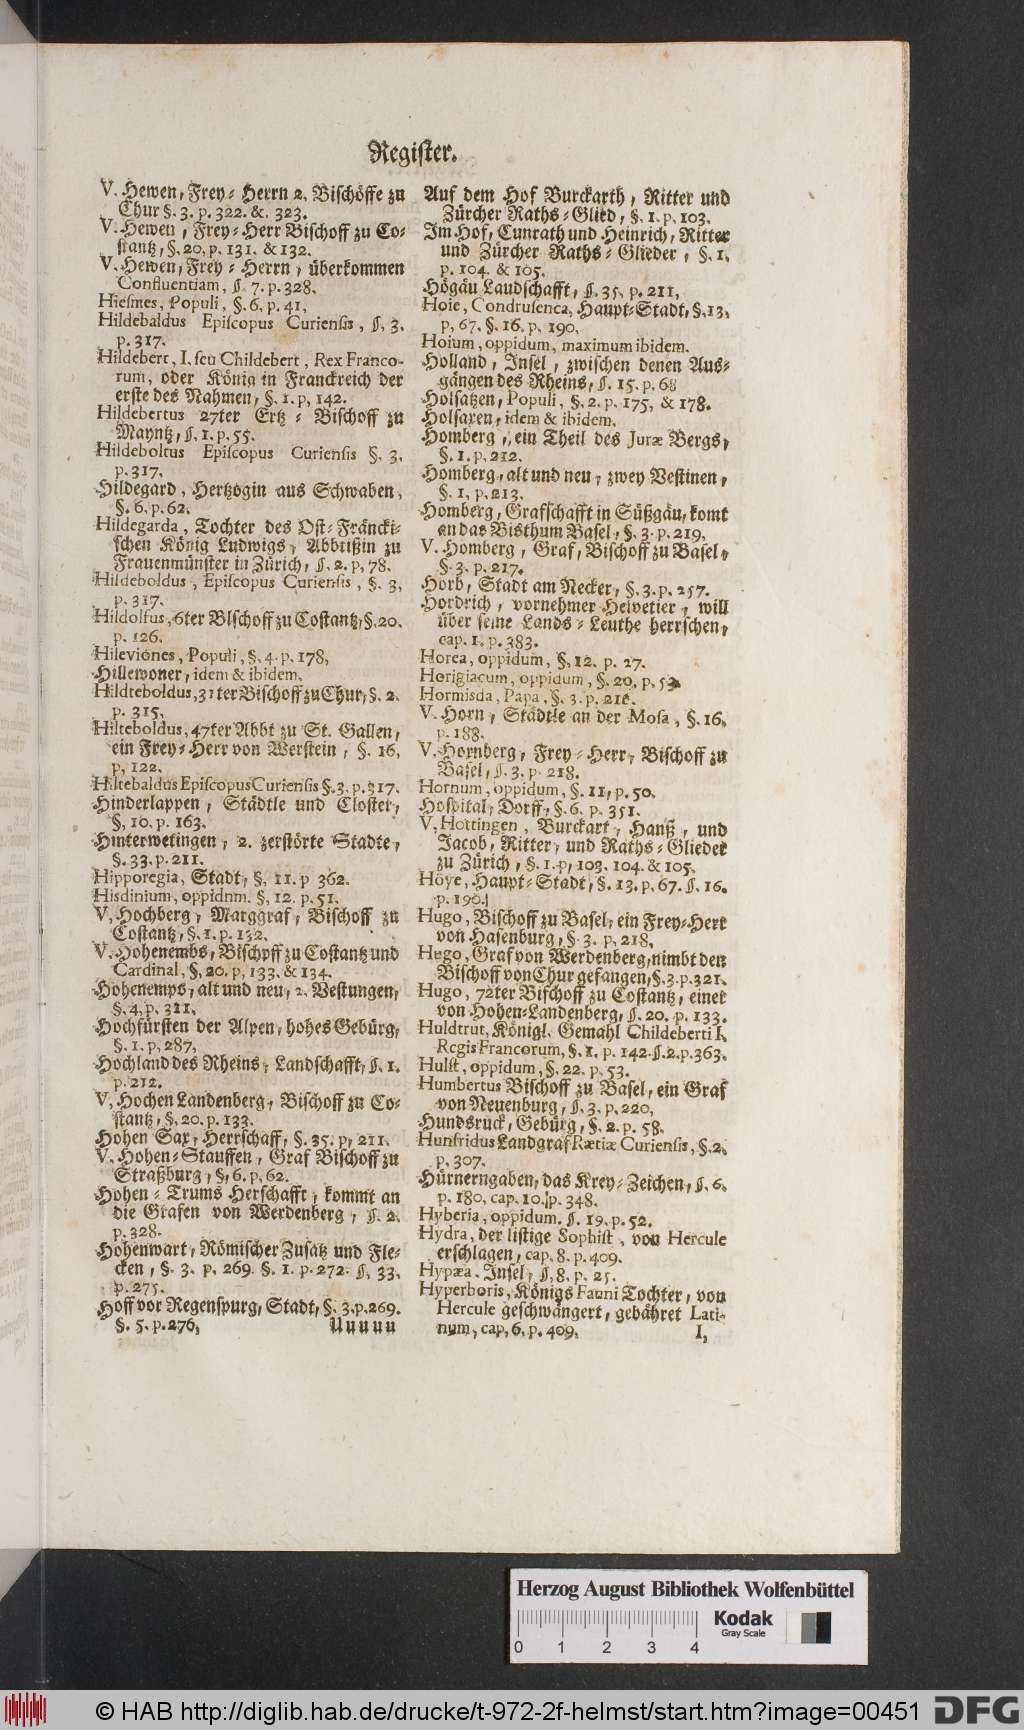 Register.
V. Hewen, Frey-Herrn 2. Bischöffe zu
Chur §. 3. p. 322. &. 323.
V. Hewen, Frey-Herr Bischoff zu Co-
stantz, §. 20. p. 131. & 132.
V. Hewen, Frey-Herrn, überkommen
Confluentiam, §. 7. p. 328.
Hiesmes, Populi, §. 6. p. 41.
Hildebaldus Episcopus Curiensis, §. 3.
p. 317.
Hildebert, I. seu Childebert, Rex Franco-
rum, oder König in Franckreich der
erste des Nahmen, §. 1. p, 142.
Hildebertus 27ter Ertz-Bischoff zu
Mayntz, §. 1. p. 55.
Hildeboltus Episcopus Curiensis §. 3.
p. 317.
Hildegard, Hertzogin aus Schwaben,
§. 6. p. 62.
Hildegarda, Tochter des Ost-Fräncki-
schen König Ludwigs, Abbtißin zu
Frauenmünster in Zürich, §. 2. p. 78.
Hildeboldus, Episcopus Curiensis, §. 3,
p. 317.
Hildolfus, 6ter BIschoff zu Costantz, §. 20.
p. 126.
Hileviones, Populi, §. 4. p. 178,
Hillewoner, idem & ibidem.
Hildteboldus, 31ter Bischoff zu Chur, §. 2.
p. 315.
Hilteboldus, 47ter Abbt zu St. Gallen,
ein Frey-Herr von Werstein, §. 16,
p. 122.
Hiltebaldus Episcopus Curiensis §. 3. p. 317.
Hinderlappen, Städtle und Closter,
§, 10. p. 163.
Hinterwetingen, 2. zerstörte Stadte,
§. 33. p. 211.
Hipporegia, Stadt, §, 11. p 362.
Hisdinium, oppidnm. §, 12. p. 51.
V, Hochberg, Marggraf, Bischoff zu
Costantz, §. 1. p. 132.
V. Hohenembs, Bischoff zu Costantz und
Cardinal, §. 20. p, 133. & 134.
Hohenemps, alt und neu, 2. Vestungen,
§. 4, p. 311.
Hochfürsten der Alpen, hohes Gebürg,
§. 1. p, 287,
Hochland des Rheins, Landschafft, §. 1.
p. 212.
V, Hochen Landenberg, Bischoff zu Co-
stantz, §. 20. p. 133.
Hohen Sax, Herrschaff, §. 35. p, 211.
V. Hohen-Stauffen, Graf Bischoff zu
Straßburg, §, 6. p. 62.
Hohen-Trums Herschafft, kommt an
die Grafen von Werdenberg, §. 2.
p. 328.
Hohenwart, Römischer Zusatz und Fle-
cken, §. 3. p. 269. §. 1. p. 272. §, 33.
p. 275.
Hoff vor Regenspurg, Stadt, §. 3. p. 269.
§. 5. p. 276, Uuuuu
Auf dem Hof Burckarth, Ritter und
Zürcher Raths-Glied, §. 1. p. 103.
Im Hof, Cunrath und Heinrich, Ritter
und Zürcher Raths-Glieder, §. 1.
p. 104. & 105.
Högäu Laudschafft, §. 35. p. 211,
Hoie, Condrusenca, Haupt-Stadt, §. 13,
p, 67. §. 16. p. 190.
Hoium, oppidum, maximum ibidem.
Holland, Insel, zwischen denen Aus-
gängen des Rheins, §. 15. p. 68
Holsatzen, Populi, §. 2. p. 175, & 178.
Holsaxen, idem & ibidem.
Homberg, ein Theil des Juræ Bergs,
§. 1. p. 212.
Homberg, alt und neu, zwey Vestinen,
§. 1. p. 213.
Homberg, Grafschafft in Süßgäu, komt
an das Bisthum Basel, §. 3. p. 219.
V. Homberg, Graf, Bischoff zu Basel,
§. 3. p. 217.
Horb, Stadt am Necker, §. 3. p. 257.
Hordrich, vornehmer Helvetier, will
über seine Lands-Leuthe herrschen,
cap. 1. p. 383.
Horea, oppidum, §, 12. p. 27.
Herigiacum, oppidum, §. 20. p, 53.
Hormisda, Papa, §. 3. p. 216.
V. Horn, Städtle an der Mosa, §. 16,
p. 188.
V. Hornberg, Frey-Herr, Bischoff zu
Basel, §. 3. p. 218.
Hornum, oppidum, §. 11, p. 50.
Hospital, Dorff, §. 6. p. 351.
V, Hottingen, Burckart, Hanß, und
Jacob, Ritter, und Raths-Glieder
zu Zürich, §. 1. p, 103. 104. & 105.
Höye, Haupt-Stadt, §. 13. p. 67. §. 16.
p. 190.
Hugo, Bischoff zu Basel, ein Frey-Herr
von Hasenburg, §. 3. p. 218,
Hugo, Graf von Werdenberg, nimbt den
Bischoff von Chur gefangen, §. 3. p. 321.
Hugo, 72ter Bischoff zu Costantz, einer
von Hohen-Landenberg, §. 20. p. 133.
Huldtrut, Königl. Gemahl Childeberti I,
Regis Francorum, §. 1. p. 142. §. 2. p. 363.
Hulst, oppidum, §. 22. p. 53.
Humbertus Bischoff zu Basel, ein Graf
von Neuenburg, §. 3. p. 220,
Hundsrück, Gebürg, §. 2. p. 58.
Hunfridus Landgraf Rætiæ Curiensis, §. 2.
p. 307.
Hürnerngaben, das Krey-Zeichen, §. 6.
p. 180, cap. 10. p. 348.
Hyberia, oppidum. §. 19. p. 52.
Hydra, der listige Sophist, von Hercule
erschlagen, cap. 8. p. 409.
Hypæa. Insel, §. 8. p. 25.
Hyperboris, Königs Fauni Tochter, von
Hercule geschwängert, gebähret Lati-
num, cap, 6. p. 409. I,
Herzog August Bibliothek Wolfenbüttel
0 1 2 3 4
Kodak
Gray Scale
© HAB http://diglib.hab.de/drucke/t-972-2f-helmst/start.htm?image=00451 DFG